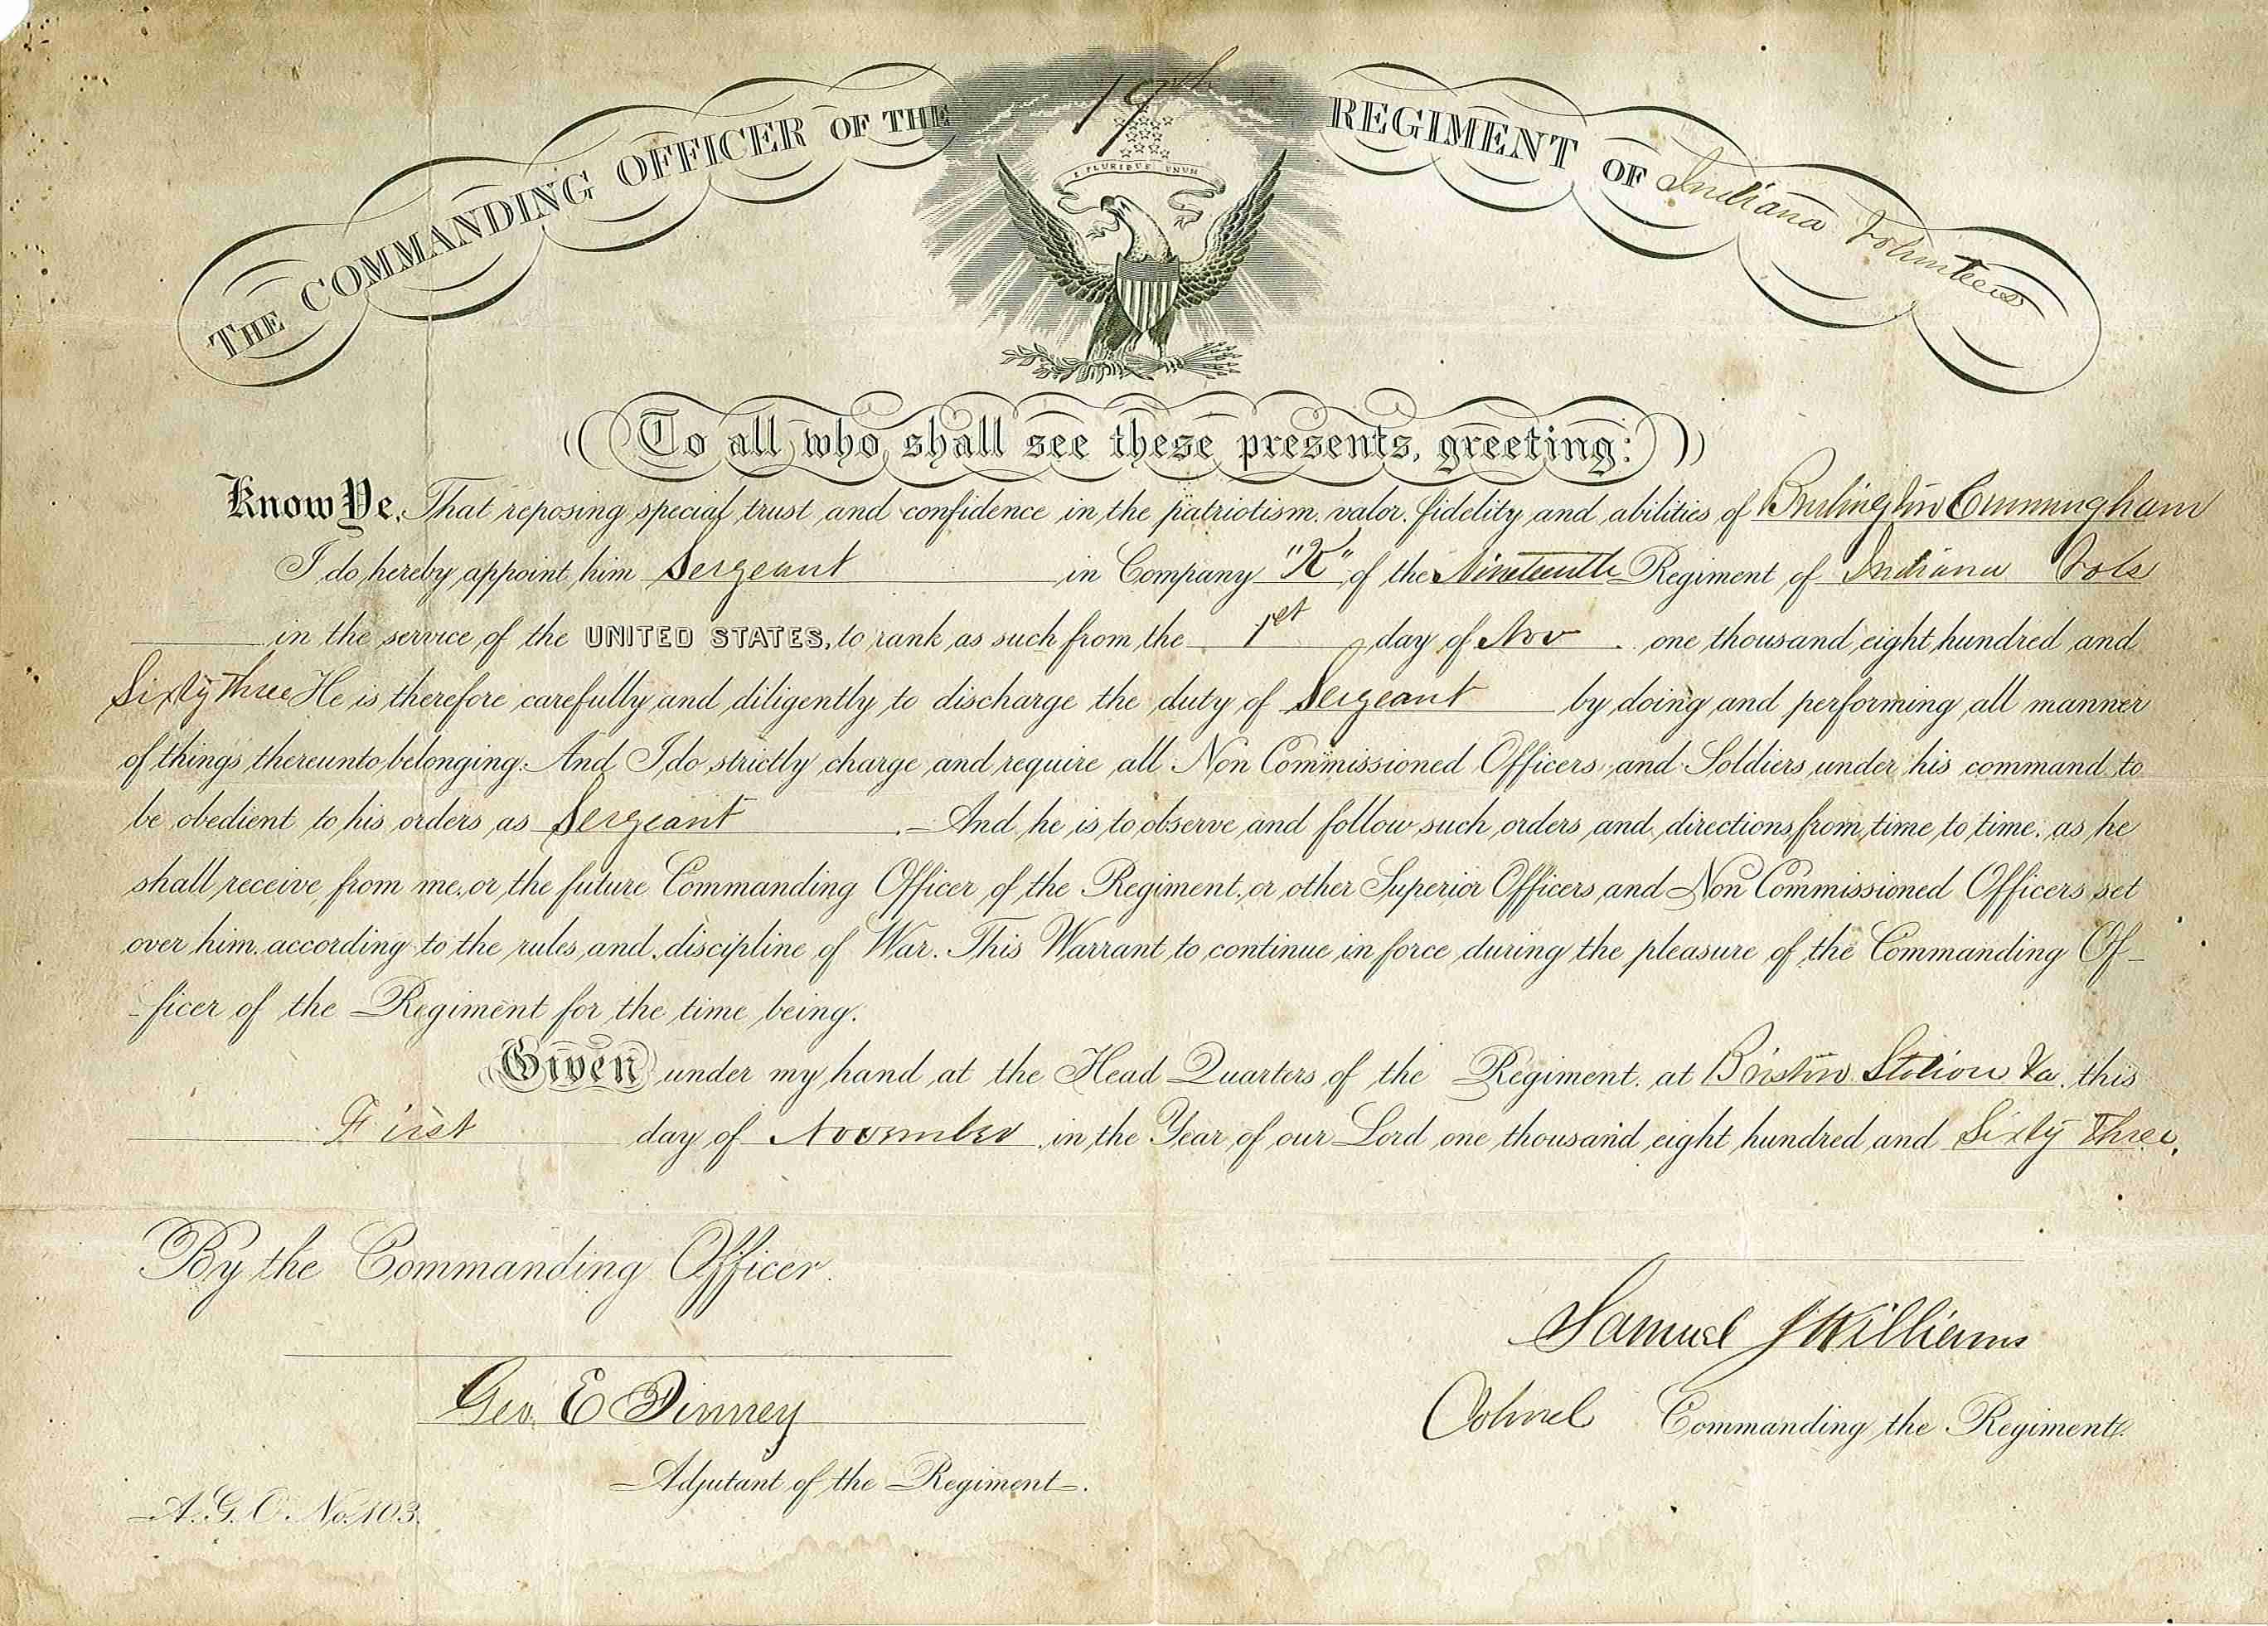 THE COMMANDING OFFICER OF THE 19th REGIMENT OF Indiana Volunteers
E PLURIBUS UNUM
To all who shall see these presents, greeting:
Know Ye, That reposing special trust and confidence in the patriotism, valor, fidelity and abilities of Burlington Cunningham
I do hereby appoint him Sergeant in Company "K" of the Nineteenth Regiment of Indiana Vols
in the service of the UNITED STATES, to rank as such from the 1st day of Nov one thousand eight hundred and
Sixty Three He is therefore carefully and diligently to discharge the duty of Sergeant by doing and performing all manner
of things thereunto belonging. And I do strictly charge and require all Non Commissioned Officers and Soldiers under his command to
be obedient to his orders as Sergeant. And he is to observe and follow such orders and directions from time to time, as he
shall receive from me, or the future Commanding Officer of the Regiment, or other Superior Officers and Non Commissioned Officers set
over him, according to the rules and discipline of War. This Warrant to continue in force during the pleasure of the Commanding Of-
-ficer of the Regiment for the time being.
Given under my hand at the Head Quarters of the Regiment, at Bristow Station Va. this
First day of November in the Year of our Lord one thousand eight hundred and Sixty Three.
By the Commanding Officer.
Samuel J Williams
Geo. E Finney
Colonel Commanding the Regiment.
Adjutant of the Regiment.
A. G. O. No. 103.